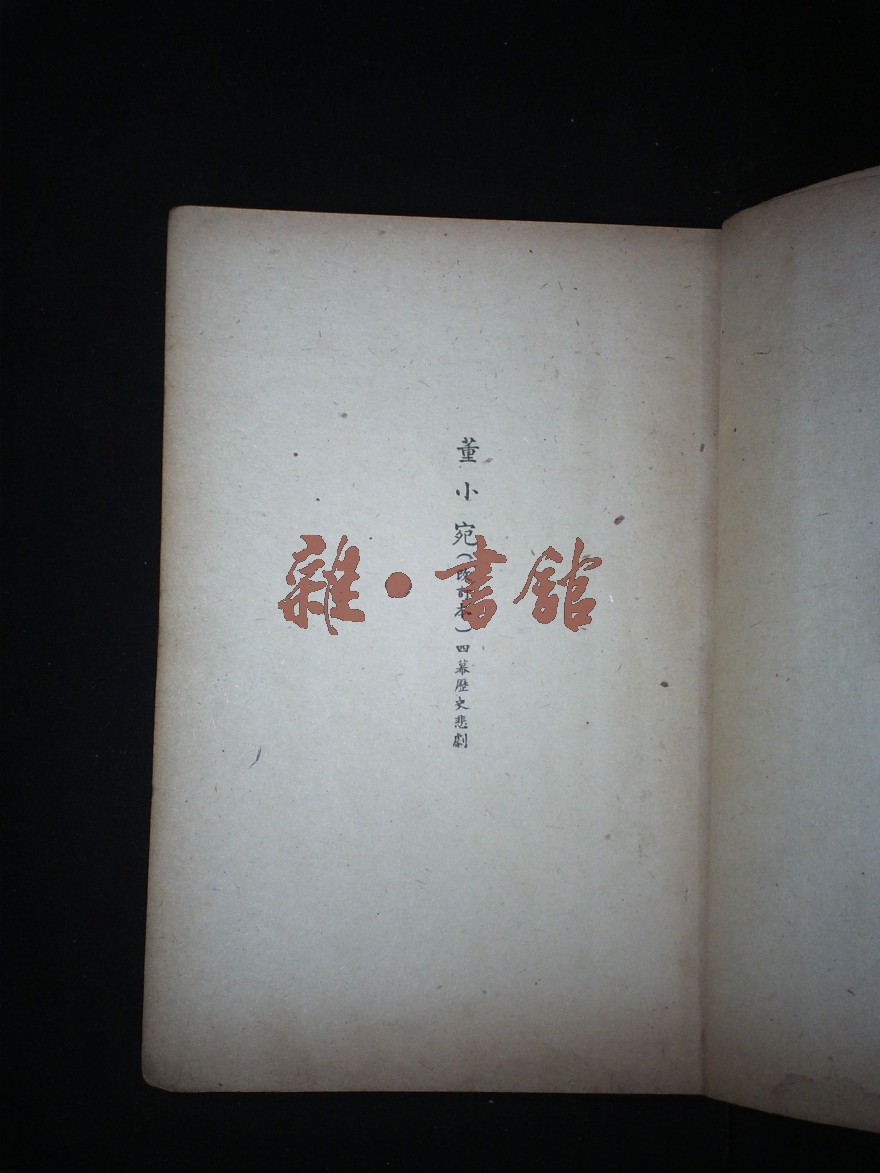 董小宛(改訂本)四幕歷史悲劇
雜·書館